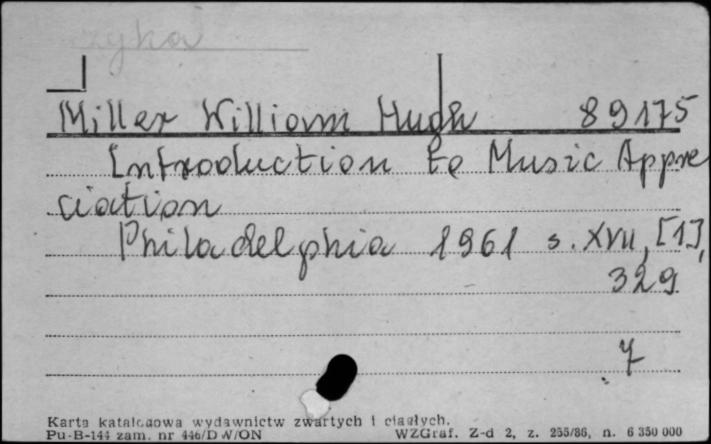 Miller William Hugh 89175
Introduction to Music Appre
ciation
Philadelphia 1961 s. XVII, [1],
329
7
Karta katalogowa wydawnictw zwartych i ciągłych.
Pu-B-144 zam. nr 446/DW/ON WZGraf. Z-d 2, z. 255/86, n. 6 350 000